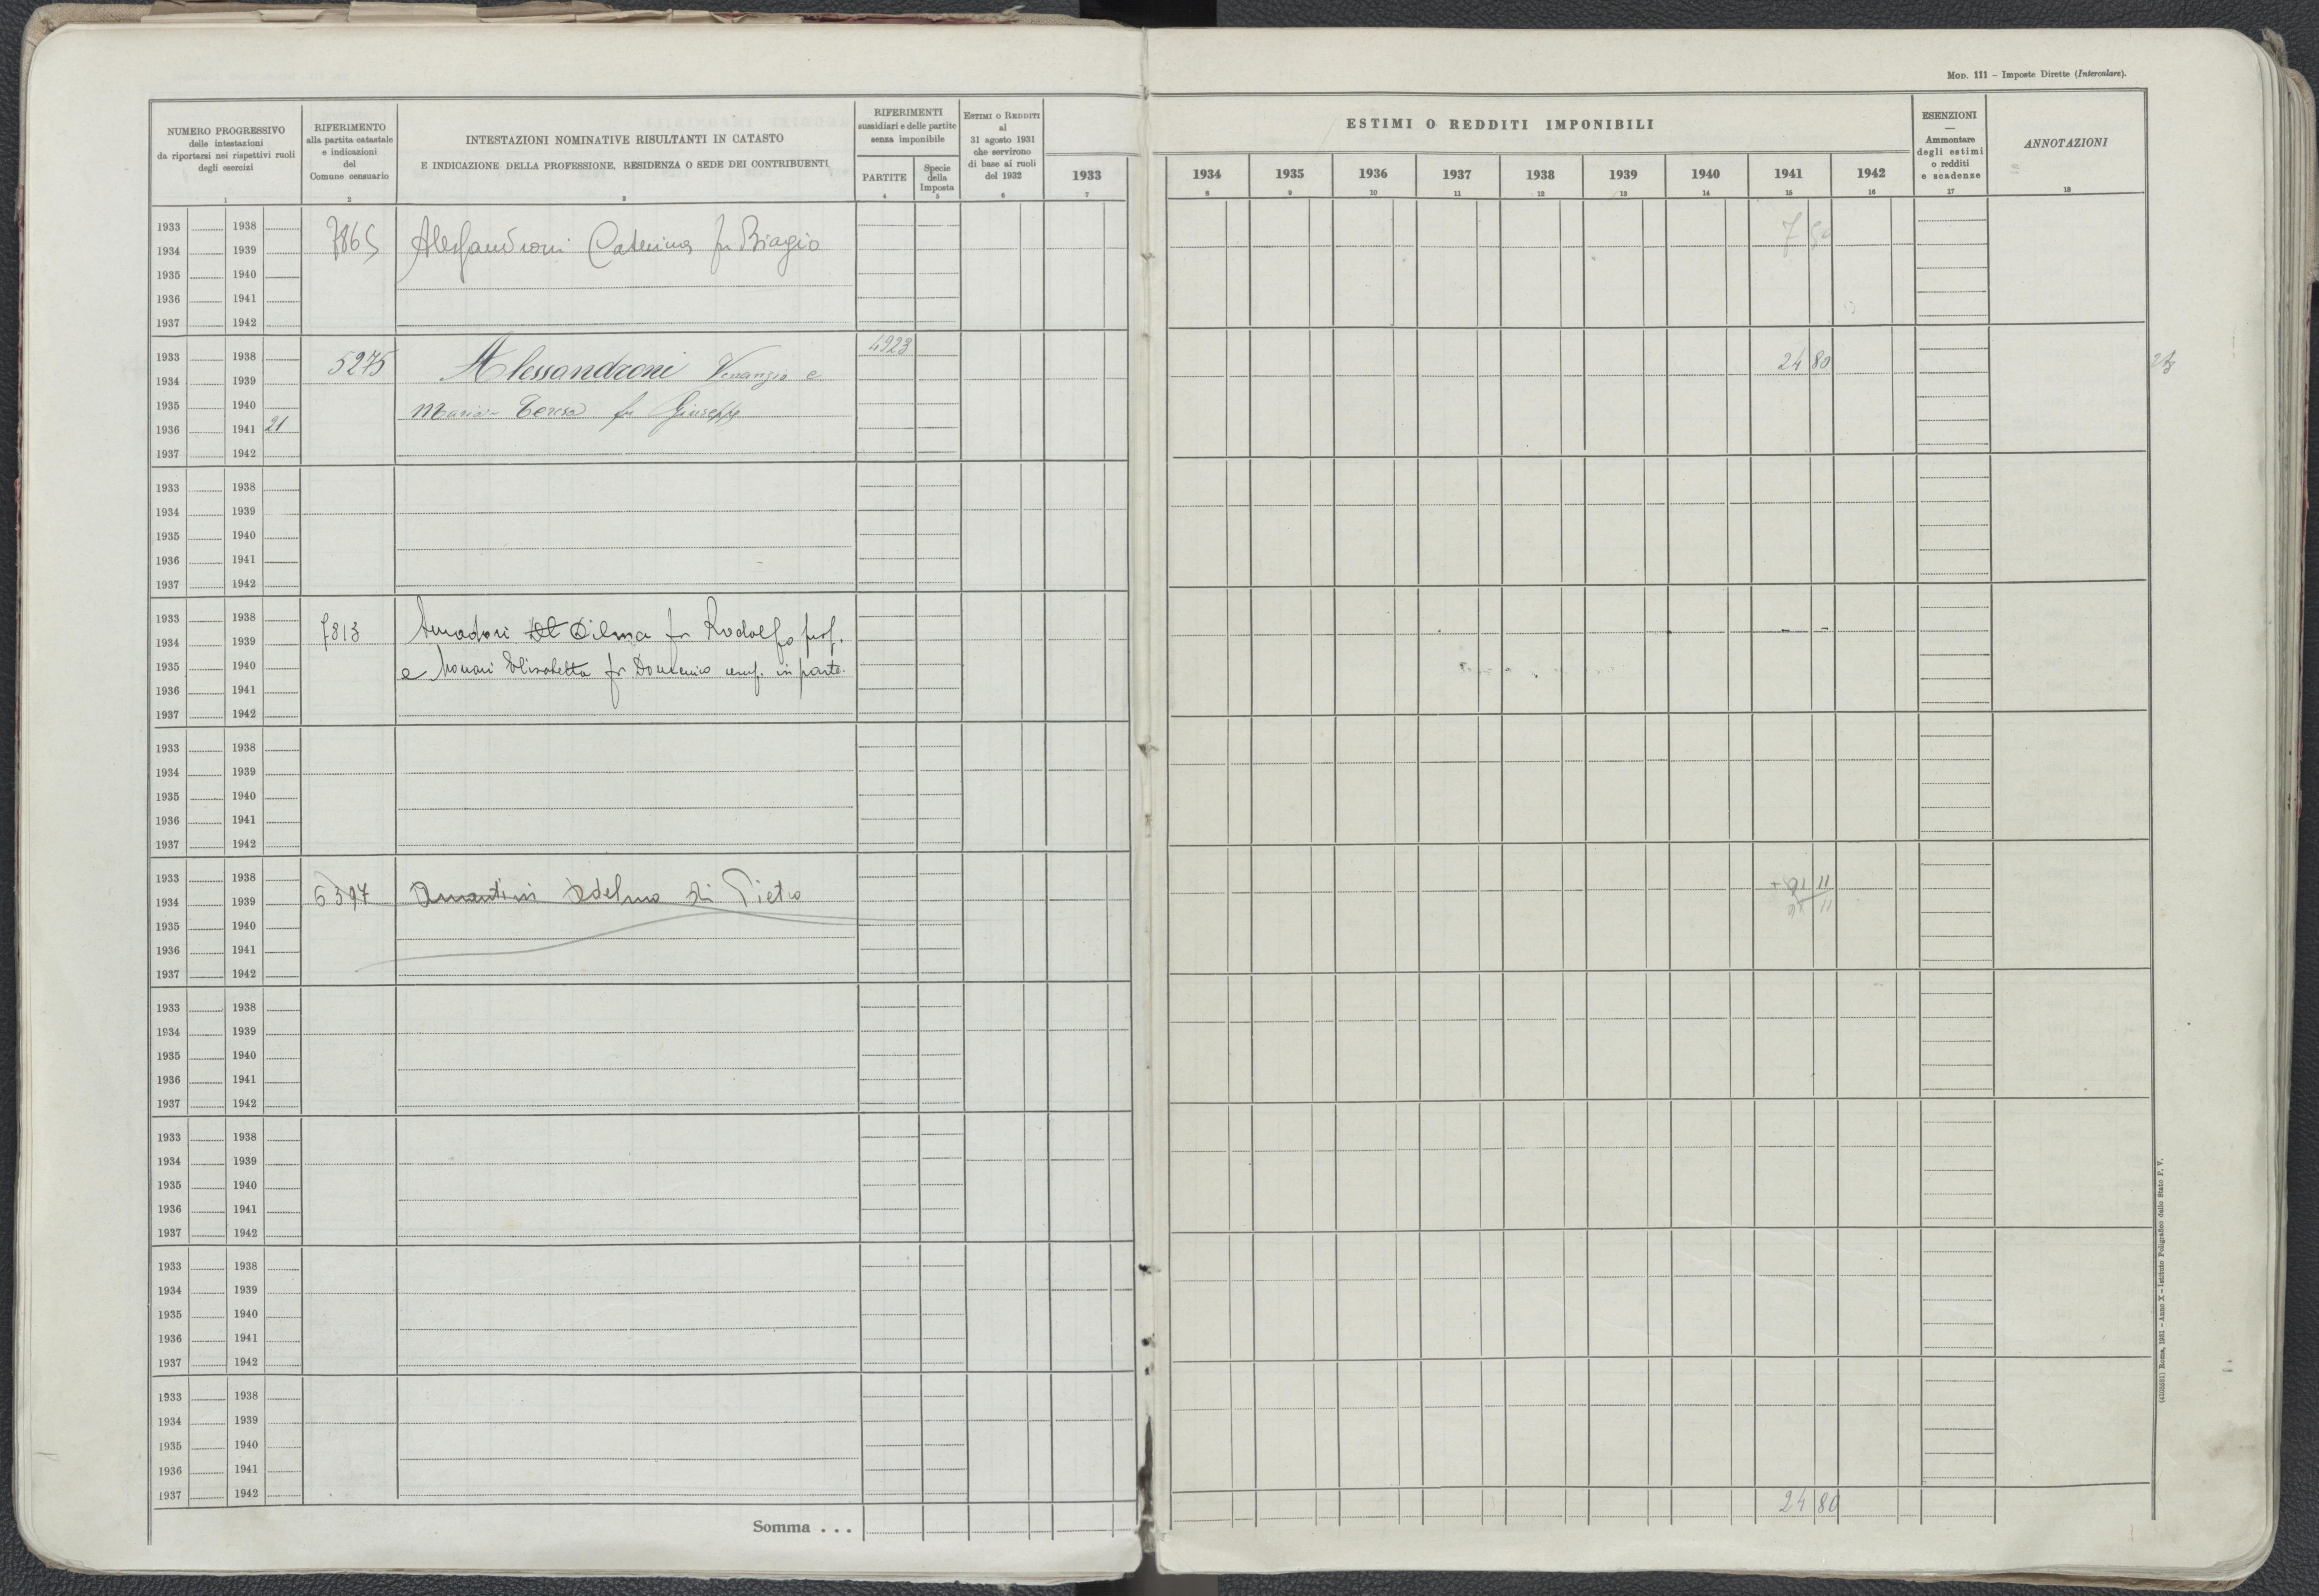 Mod. 111 – Imposte Dirette (Intercalare).
NUMERO PROGRESSIVO
delle intestazioni
da riportarsi nei rispettivi ruoli
degli esercizi
1
RIFERIMENTO
alla partita catastale
e indicazioni
del
Comune censuario
2
INTESTAZIONI NOMINATIVE RISULTANTI IN CATASTO
E INDICAZIONE DELLA PROFESSIONE, RESIDENZA O SEDE DEI CONTRIBUENTI
3
RIFERIMENTI
sussidiari e delle partite
senza imponibile
PARTITE
4
Specie
della
Imposta
5
Estimi o Redditi
al
31 agosto 1931
che servirono
di base ai ruoli
del 1932
6
1933
7
ESTIMI O REDDITI IMPONIBILI
1934 1935 1936 1937 1938 1939 1940 1941 1942
8 9 10 11 12 13 14 15 16
ESENZIONI
—
Ammontare
degli estimi
o redditi
e scadenze
17
ANNOTAZIONI
18
1933 1938 7865 Alessandroni Caterina fu Biagio 7 50
1934 1939
1935 1940
1936 1941
1937 1942
1933 1938 5275 Alessandroni Venanzio e 4923 24 80
1934 1939
1935 1940 Maria-Teresa fu Giuseppe
1936 1941 21
1937 1942
1933 1938
1934 1939
1935 1940
1936 1941
1937 1942
1933 1938
1934 1939 7813 Amadori Dilma fu Rodolfo prop. - -
1935 1940 e Elisabetta fu Domenico usuf. in parte
1936 1941
1937 1942
1933 1938
1934 1939
1935 1940
1936 1941
1937 1942
1933 1938
1934 1939 6397 Amantini Adelmo di Pietro + 91 11
1935 1940 91 11
1936 1941
1937 1942
1933 1938
1934 1939
1935 1940
1936 1941
1937 1942
1933 1938
1934 1939
1935 1940
1936 1941
1937 1942
1933 1938
1934 1939
1935 1940
1936 1941
1937 1942
1933 1938
1934 1939
1935 1940
1936 1941
1937 1942
Somma . . . 24 80
(4103521) Roma, 1931 – Anno X – Istituto Poligrafico dello Stato P. V.